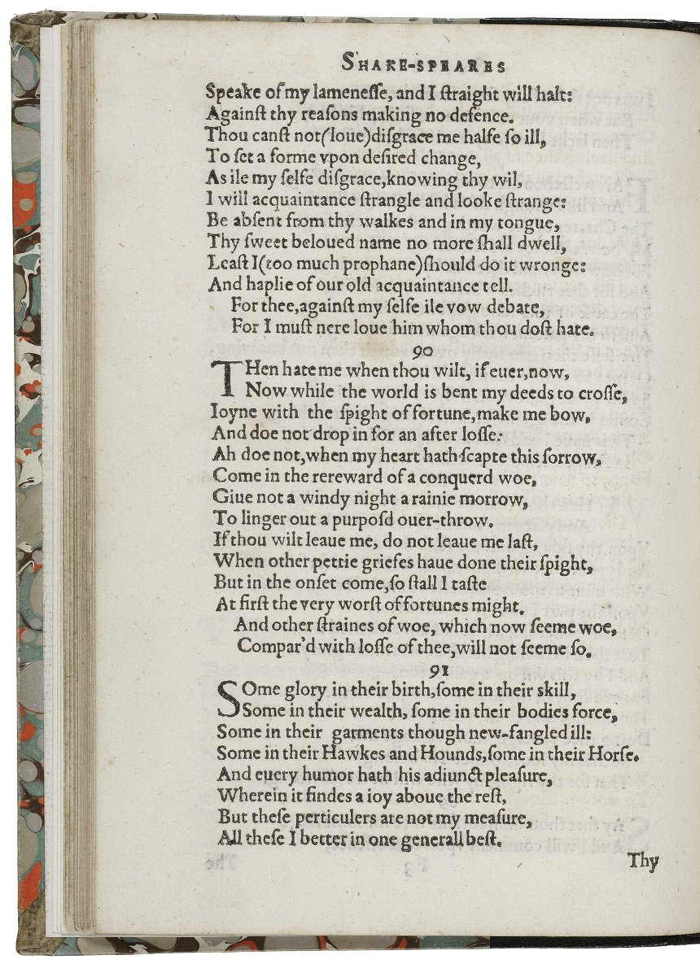 SHAKE-SPEARES
Speake of my lamenesse, and I straight will halt:
Against thy reasons making no defence.
Thou canst not(loue)disgrace me halfe so ill,
To set a forme vpon desired change,
As ile my selfe disgrace,knowing thy wil,
I will acquaintance strangle and looke strange:
Be absent from thy walkes and in my tongue,
Thy sweet beloued name no more shall dwell,
Least I(too much prophane)should do it wronge:
And haplie of our old acquaintance tell.
For thee,against my selfe ile vow debate,
For I must nere loue him whom thou dost hate.
90
THen hate me when thou wilt, if euer,now,
Now while the world is bent my deeds to crosse,
Ioyne with the spight of fortune,make me bow,
And doe not drop in for an after losse:
Ah doe not,when my heart hath scapte this sorrow,
Come in the rereward of a conquerd woe,
Giue not a windy night a rainie morrow,
To linger out a purposd ouer-throw.
If thou wilt leaue me, do not leaue me last,
When other pettie griefes haue done their spight,
But in the onset come,so stall I taste
At first the very worst of fortunes might.
And other straines of woe, which now seeme woe,
Compar'd with losse of thee,will not seeme so.
91
SOme glory in their birth,some in their skill,
Some in their wealth, some in their bodies force,
Some in their garments though new-fangled ill:
Some in their Hawkes and Hounds,some in their Horse.
And euery humor hath his adiunct pleasure,
Wherein it findes a ioy aboue the rest,
But these perticulers are not my measure,
All these I better in one generall best.
Thy